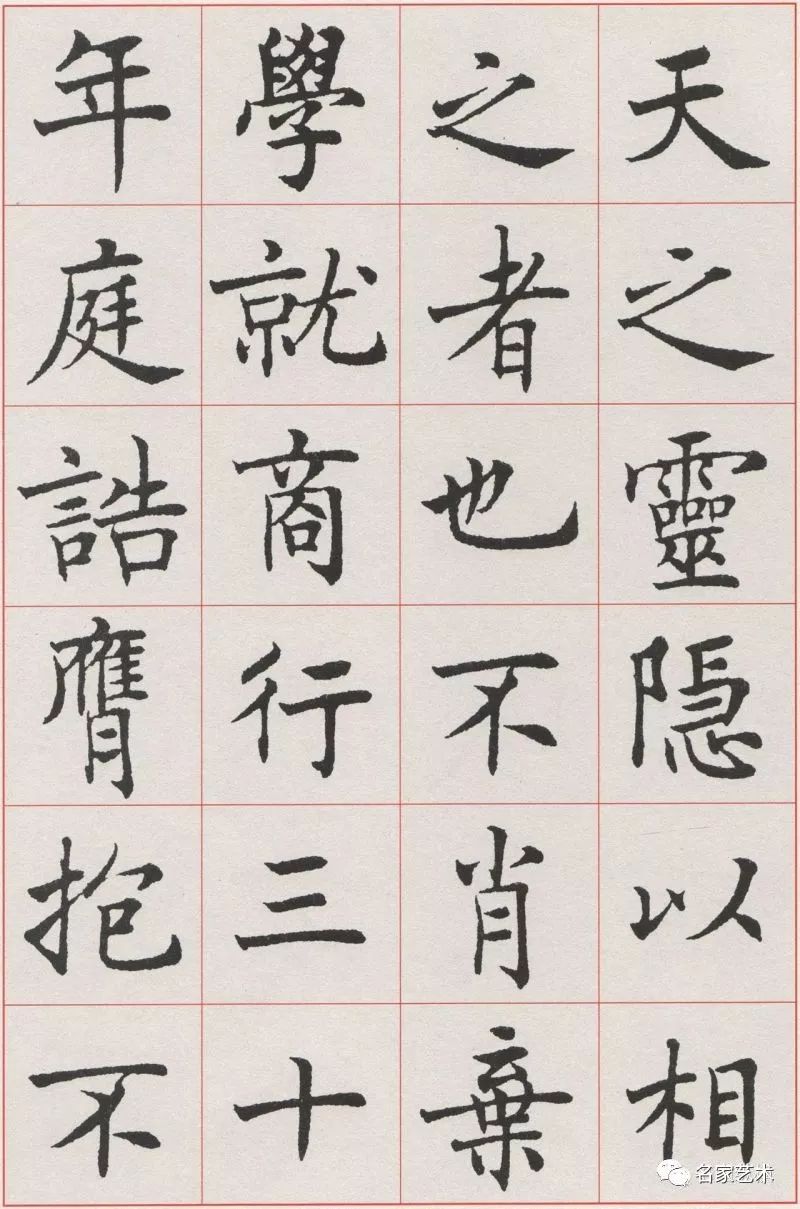 天之靈隱以相
之者也不肖棄
學就商行三十
年庭誥膺抱不
名家艺术